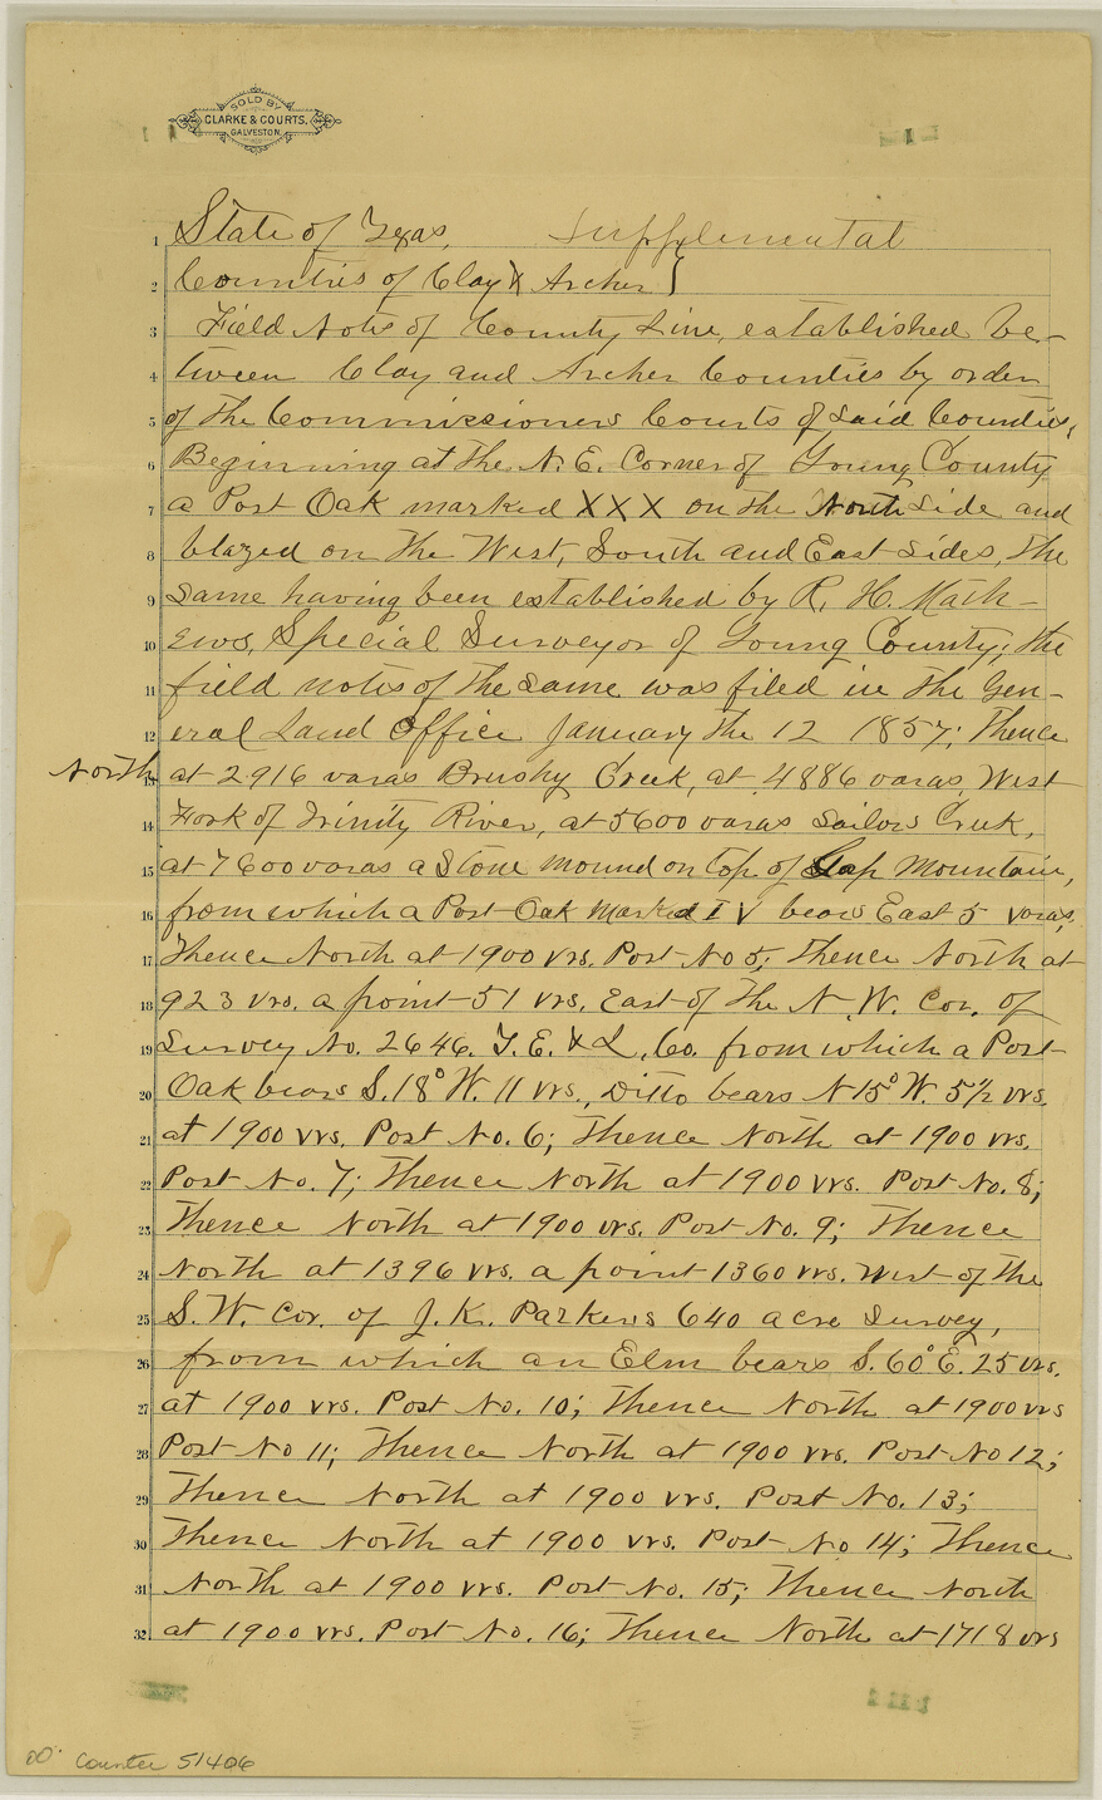 SOLD BY
CLARKE & COURTS,
GALVESTON.
1 State of Texas, Supplemental
2 Counties of Clay & Archer }
3 Field Notes of County Line, established be-
4 tween Clay and Archer Counties by order
5 of the Commissioners Courts of said Counties,
6 Beginning at the N. E. Corner of Young County
7 a Post Oak marked XXX on the North Side and
8 blazed on the West, South and East sides, the
9 same having been established by R. H. Math-
10 ews, Special Surveyor of Young County; the
11 field notes of the same was filed in the Gen-
12 eral Land Office January the 12 1857; Thence
North
13 at 2916 varas Brushy Creek, at 4886 varas, West
14 Fork of Trinity River, at 5600 varas Sailors Creek,
15 at 7600 varas a Stone mound on top of Mountain,
16 from which a Post Oak Marked I V bears East 5 varas,
17 Thence North at 1900 vrs. Post No 5; Thence North at
18 923 vrs. a point 51 vrs. East of the N. W. Cor. of
19 Survey No. 2646. T. E. & L. Co. from which a Post
20 Oak bears S. 18° W. 11 vrs., Ditto bears N 15° W. 5½ vrs.
21 at 1900 vrs. Post No. 6; Thence North at 1900 vrs.
22 Post No. 7; Thence North at 1900 vrs. Post No. 8;
23 Thence North at 1900 vrs. Post No. 9; Thence
24 North at 1396 vrs. a point 1360 vrs. West of the
25 S. W. Cor. of J. K. Parkers 640 acre Survey,
26 from which an Elm bears S. 60° E. 25 vrs.
27 at 1900 vrs. Post No. 10; Thence North at 1900 vrs
28 Post No 11; Thence North at 1900 vrs. Post No 12;
29 Thence North at 1900 vrs. Post No. 13;
30 Thence North at 1900 vrs. Post No 14; Thence
31 North at 1900 vrs. Post No. 15; Thence North
32 at 1900 vrs. Post No. 16; Thence North at 1718 vrs
Counter 51406